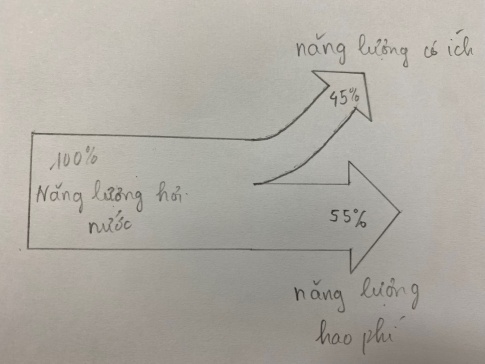 năng lượng có ích
45%
100%
Năng lượng hơi
nước
55%
năng lượng
hao phí